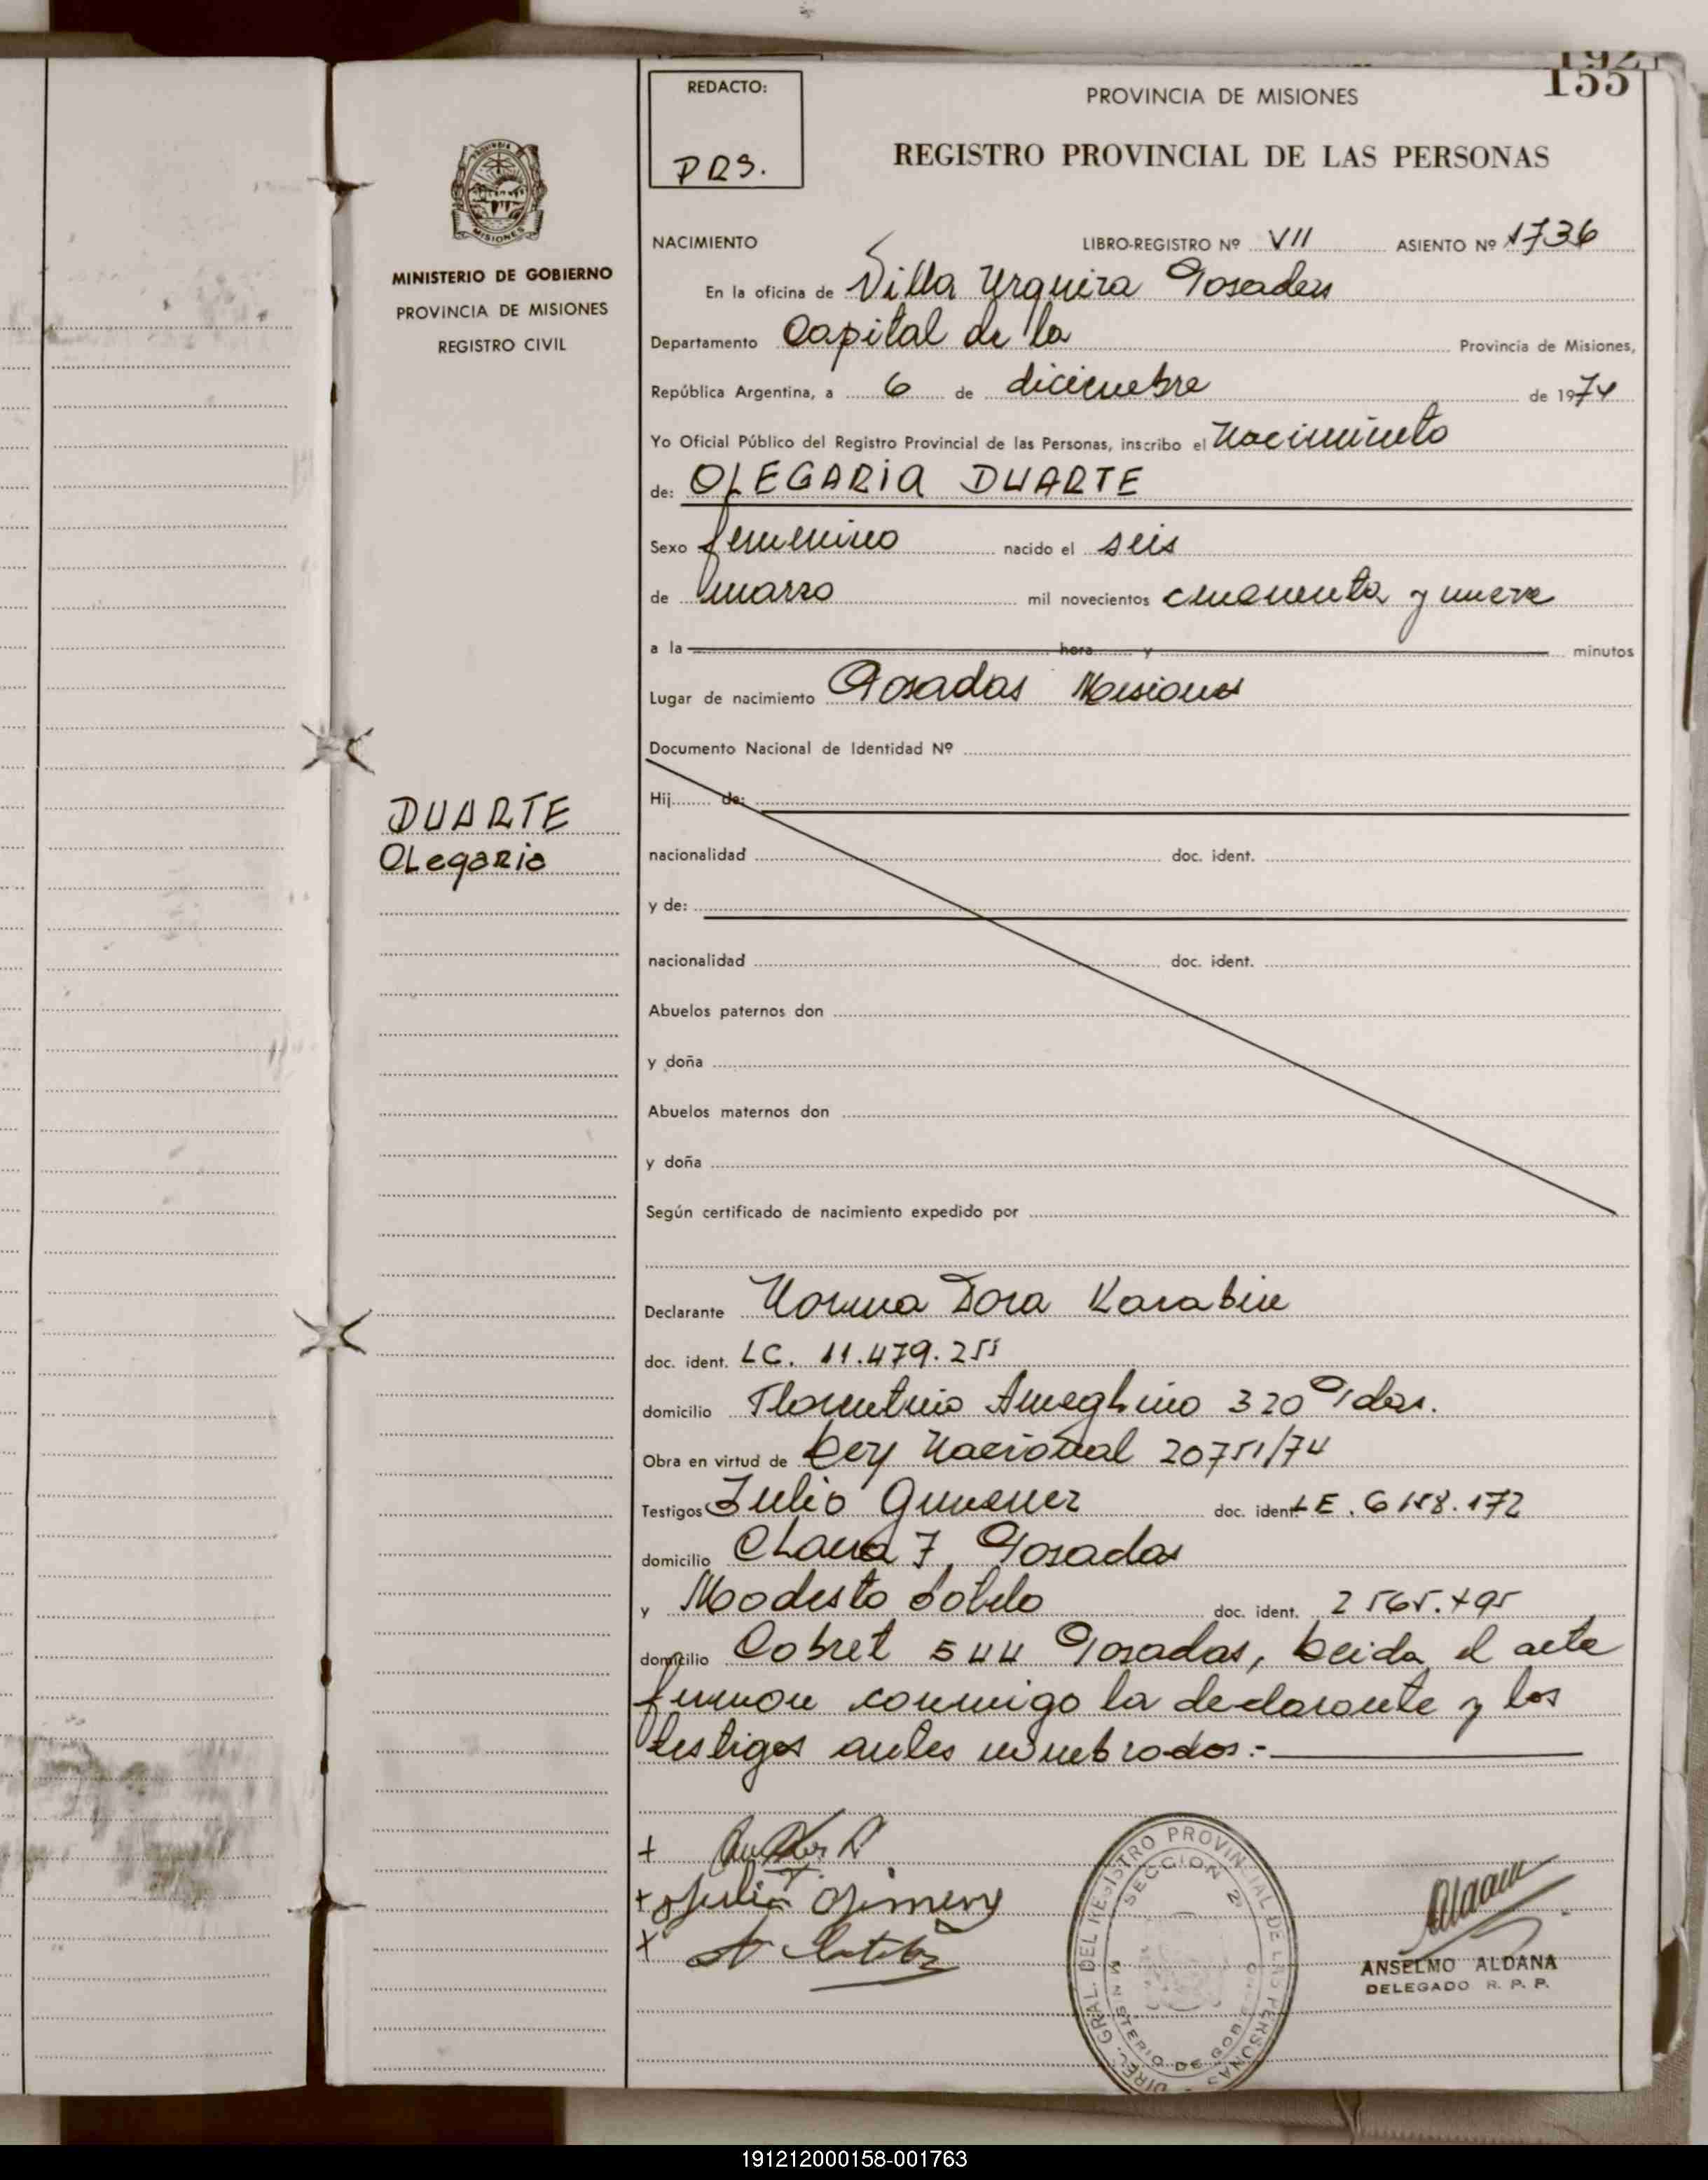 192
155
REDACTO:
PROVINCIA DE MISIONES
REGISTRO PROVINCIAL DE LAS PERSONAS
MISIONES
MINISTERIO DE GOBIERNO
PROVINCIA DE MISIONES
REGISTRO CIVIL
DUARTE
OLegaria
NACIMIENTO LIBRO-REGISTRO Nº VII ASIENTO Nº 1736
En la oficina de Villa Urquiza Posadas
Departamento Capital de la Provincia de Misiones,
República Argentina, a 6 de diciembre de 1974
Yo Oficial Público del Registro Provincial de las Personas, inscribo el Nacimiento
de: OLEGARIA DUARTE
Sexo femenino nacido el seis
de marzo mil novecientos cincuenta y nueve
a la hora y minutos
Lugar de nacimiento Posadas Misiones
Documento Nacional de Identidad Nº
Hij de:
nacionalidad doc. ident.
y de:
nacionalidad doc. ident.
Abuelos paternos don
y doña
Abuelos maternos don
y doña
Según certificado de nacimiento expedido por
Declarante Norma Dora Karabin
doc. ident. LC. 11.479.255
domicilio Florentino Ameghino 320 Pdas.
Obra en virtud de Ley Nacional 20751/74
Testigos Julio Gimenez doc. ident. LE. 6158.172
domicilio 7, Posadas
y Modesto Sotelo doc. ident. 2565.495
domicilio 544 Posadas, Leida el acta
firman conmigo la declarante y los
testigos antes nombrados.-
+
+ Julio Gimenez
x
DIREC. GRAL. DEL REGISTRO PROVINCIAL DE LAS PERSONAS
SECCION 2ª
MINISTERIO DE GOBIERNO
ANSELMO ALDANA
DELEGADO R. P. P.
191212000158-001763